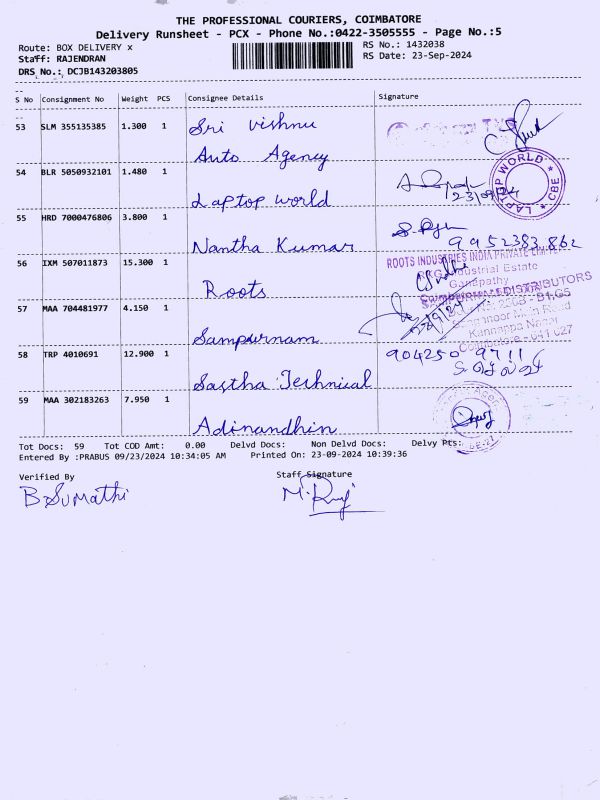 THE PROFESSIONAL COURIERS, COIMBATORE
Delivery Runsheet - PCX - Phone No.:0422-3505555 - Page No.:5
Route: BOX DELIVERY x RS No.: 1432038
Staff: RAJENDRAN RS Date: 23-Sep-2024
DRS No.: DCJB143203805
S No Consignment No Weight PCS Consignee Details Signature
53 SLM 355135385 1.300 1 Sri Vishnu
Auto Agency
54 BLR 5050932101 1.480 1 Laptop World
LAPTOP WORLD * CBE *
23/09/24
55 HRD 7000476806 3.800 1 Nantha Kumar
9952383862
56 IXM 507011873 15.300 1 Roots
ROOTS INDUSTRIES INDIA PRIVATE LIMITED
RKG Industrial Estate
Ganapathy
57 MAA 704481977 4.150 1 Sampurnam
DISTRIBUTORS
Main Road
Kannappa Nagar
Coimbatore - 641 027
58 TRP 4010691 12.900 1 Sastha Technical
904250 9711
59 MAA 302183263 7.950 1 Adinandhin
Tot Docs: 59 Tot COD Amt: 0.00 Delvd Docs: Non Delvd Docs: Delvy Pts:
Entered By :PRABUS 09/23/2024 10:34:05 AM Printed On: 23-09-2024 10:39:36
Verified By Staff Signature
B Sumathi